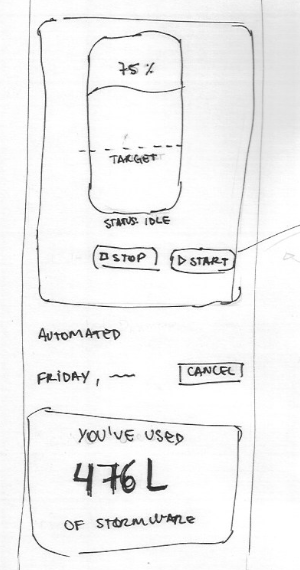 75%
TARGET
STATUS: IDLE
STOP
START
AUTOMATED
FRIDAY,
CANCEL
YOU'VE USED
476L
OF STORMWARE